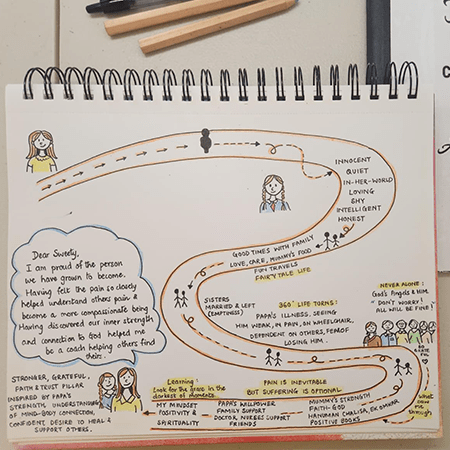 INNOCENT
QUIET
IN-HER-WORLD
LOVING
SHY
INTELLIGENT
HONEST
GOOD TIMES WITH FAMILY
LOVE, CARE, MUMMY'S FOOD
FUN TRAVELS
FAIRY TALE LIFE
SISTERS
MARRIED & LEFT
(EMPTINESS)
360° LIFE TURNS:
PAPA'S ILLNESS, SEEING
HIM WEAK, IN PAIN, ON WHEELCHAIR,
DEPENDENT ON OTHERS, FEAR OF
LOSING HIM.
NEVER ALONE:
God's Angels & Him
DON'T WORRY!
ALL WILL BE FINE!
What
saw me
through?
PAIN IS INEVITABLE
BUT SUFFERING IS OPTIONAL
MUMMY'S STRENGTH
FAITH-GOD
HANUMAN CHALISA, EK OMKAR
POSITIVE BOOKS
PAPA'S WILLPOWER
FAMILY SUPPORT
DOCTOR, NURSES SUPPORT
FRIENDS
Learning:
Look for the grace in the
darkest of moments.
MY MINDSET
POSITIVITY &
SPIRITUALITY
Dear Sweety,
I am proud of the person
we have grown to become.
Having felt the pain so closely
helped understand others pain &
become a more compassionate being
Having discovered our inner strength
and connection to God helped me
be a coach helping others find
theirs.
STRONGER, GRATEFUL,
FAITH & TRUST PILLAR
INSPIRED BY PAPA'S
STRENGTH, UNDERSTANDING
OF MIND-BODY CONNECTION,
CONFIDENT, DESIRE TO HEAL &
SUPPORT OTHERS.